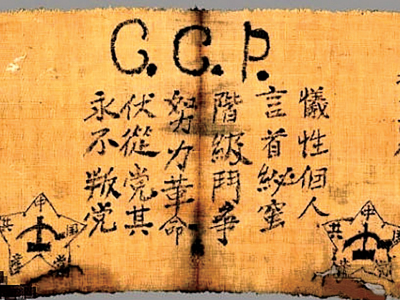 C.C.P.
犠性個人
言首秘蜜
階級鬥爭
努力革命
伏從党其
永不叛党
中国共産党
中国共産党